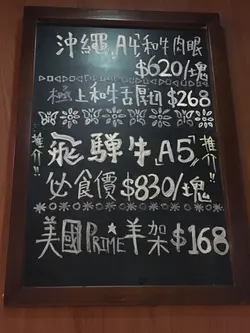 沖繩A4和牛肉眼
$620/塊
極上和牛舌厚切 $268
推介!! 飛驒牛「A5」 推介!!
必食價 $830/塊
美國PRIME羊架 $168